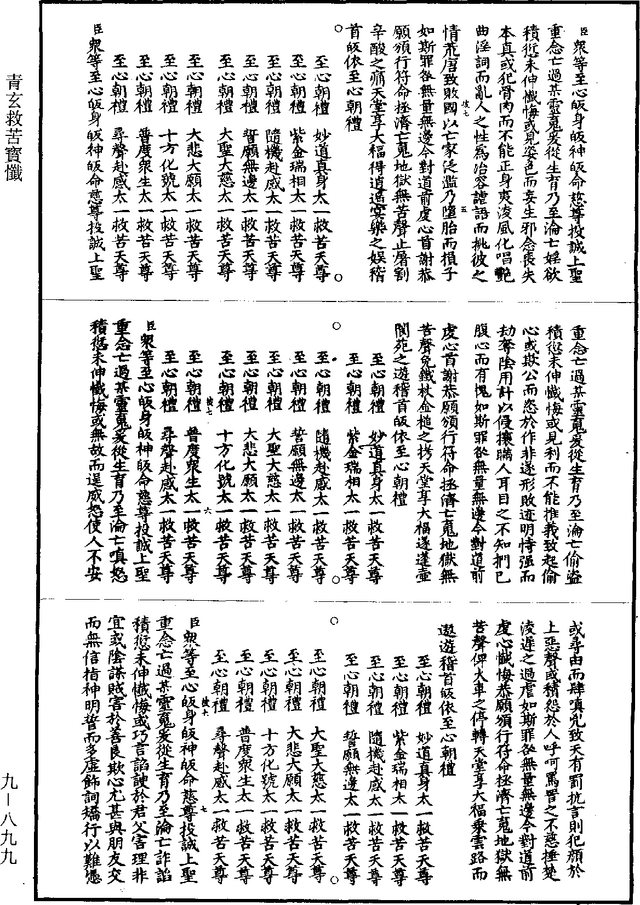 青玄救苦寳懺
臣衆等至心皈身皈神皈命慈尊投誠上聖
重念亡過某靈䰟爰從生育乃至淪亡婬欲
積愆未伸懺悔或見姿色而妄生邪念喪失
本真或犯骨肉而不能正身夷淩風化唱艶
曲淫詞而亂人之性爲冶容謔語而挑彼之
情荒唐致敗國以亡家泛濫乃墮胎而損子
如斯罪咎無量無邊今對道前虔心首謝恭
願頒行符命拯濟亡䰟地獄無苦聲止屠割
辛酸之痛天堂享大福得逍遥宴樂之娱稽
首皈依至心朝禮
至心朝禮 妙道真身太一救苦天尊
至心朝禮 紫金瑞相太一救苦天尊
至心朝禮 隨機赴感太一救苦天尊
至心朝禮 誓願無邊太一救苦天尊
至心朝禮 大聖大慈太一救苦天尊
至心朝禮 大悲大願太一救苦天尊
至心朝禮 十方化號太一救苦天尊
至心朝禮 普度衆生太一救苦天尊
至心朝禮 尋聲赴感太一救苦天尊
臣衆等至心皈身皈神皈命慈尊投誠上聖
重念亡過某靈䰟爰從生育乃至淪亡偷盗
積愆未伸懺悔或見利而不能惟義致起偷
心或欺公而恣於作非遂形敗迹明恃强而
劫奪陰用計以侵攘瞞人耳目之不知捫己
腹心而有愧如斯罪咎無量無邊今對道前
虔心首謝恭願頒行符命拯濟亡䰟地獄無
苦聲免鐵杖金槌之拷天堂享大福遂蓬壼
閬苑之遊稽首皈依至心朝禮
至心朝禮 妙道真身太一救苦天尊
至心朝禮 紫金瑞相太一救苦天尊
至心朝禮 隨機赴感太一救苦天尊
至心朝禮 誓願無邊太一救苦天尊
至心朝禮 大聖大慈太一救苦天尊
至心朝禮 大悲大願太一救苦天尊
至心朝禮 十方化號太一救苦天尊
至心朝禮 普度衆生太一救苦天尊
至心朝禮 尋聲赴感太一救苦天尊
臣衆等至心皈身皈神皈命慈尊投誠上聖
重念亡過某靈䰟爰從生育乃至淪亡嗔怒
積愆未伸懺悔或無故而逞威怒使人不安
或尋由而肆嗔兇致天有罰抗言則犯顔於
上惡聲或積怨於人呼呵罵詈之不慈捶楚
淩遲之過虐如斯罪咎無量無邊今對道前
虔心懺悔恭願頒行符命拯濟亡䰟地獄無
苦聲俾火車之停轉天堂享大福乘雲路而
遨遊稽首皈依至心朝禮
至心朝禮 妙道真身太一救苦天尊
至心朝禮 紫金瑞相太一救苦天尊
至心朝禮 隨機赴感太一救苦天尊
至心朝禮 誓願無邊太一救苦天尊
至心朝禮 大聖大慈太一救苦天尊
至心朝禮 大悲大願太一救苦天尊
至心朝禮 十方化號太一救苦天尊
至心朝禮 普度衆生太一救苦天尊
至心朝禮 尋聲赴感太一救苦天尊
臣衆等至心皈身皈神皈命慈尊投誠上聖
重念亡過某靈䰟爰從生育乃至淪亡詐諂
積愆未伸懺悔或巧言諂諛於君父害理非
宜或陰謀賊害於善良欺心尤甚與朋友交
而無信指神明誓而多虛飾詞矯行以難憑
九—八九九